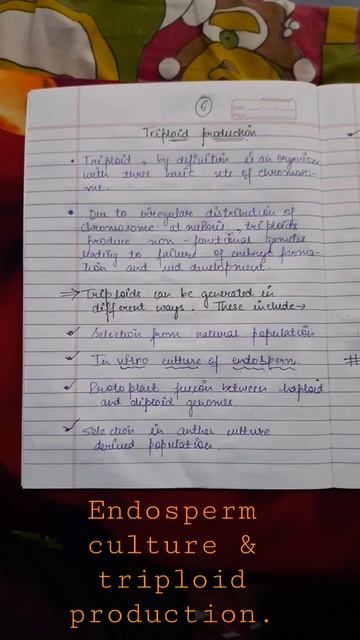 6
Triploid production
• Triploid, by definition is an organism
with three basic sets of chromoso-
me.
• Due to irregular distribution of
chromosome at meiosis, triploids
produce non-functional gametes
leading to failure of embryo forma-
tion and seed development.
⇒ Triploids can be generated in
different ways. These include→
✓ Selection from natural population
✓ In vitro culture of endosperm
✓ Protoplast fusion between haploid
and diploid genomes
✓ Selection in anther culture
derived population.
#
Endosperm
culture &
triploid
production.